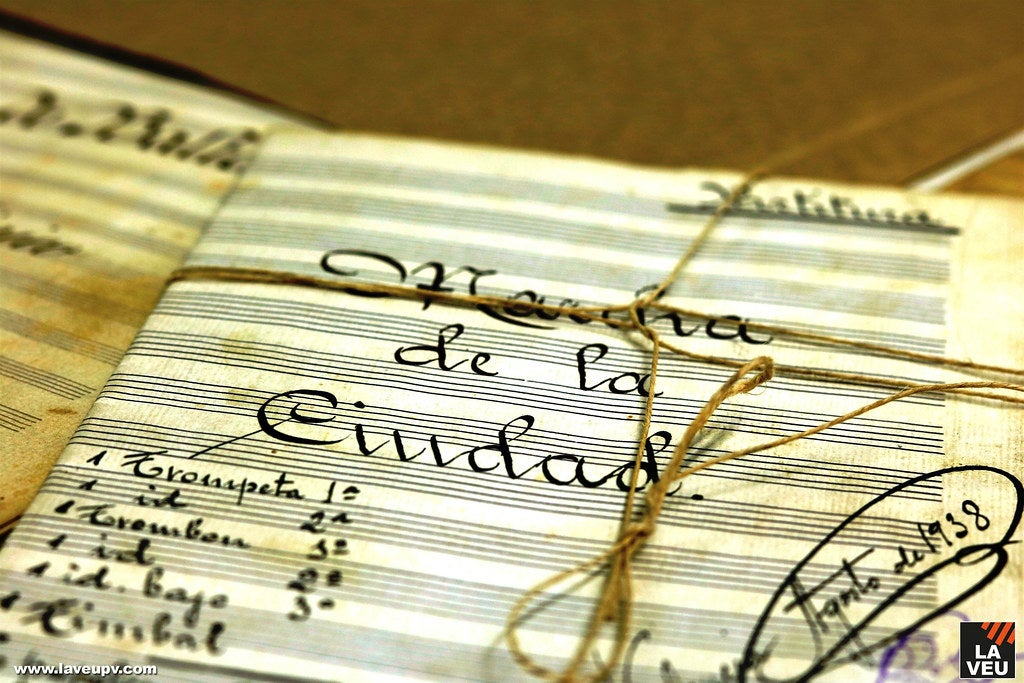 Partitura
Marcha
de la
Ciudad.
1 Trompeta 1ª
1 id 2ª
1 Trombon 1º
1 id 2º
1 id. bajo 3º
1 Timbal
Agosto de 1938
www.laveupv.com
LA
VEU